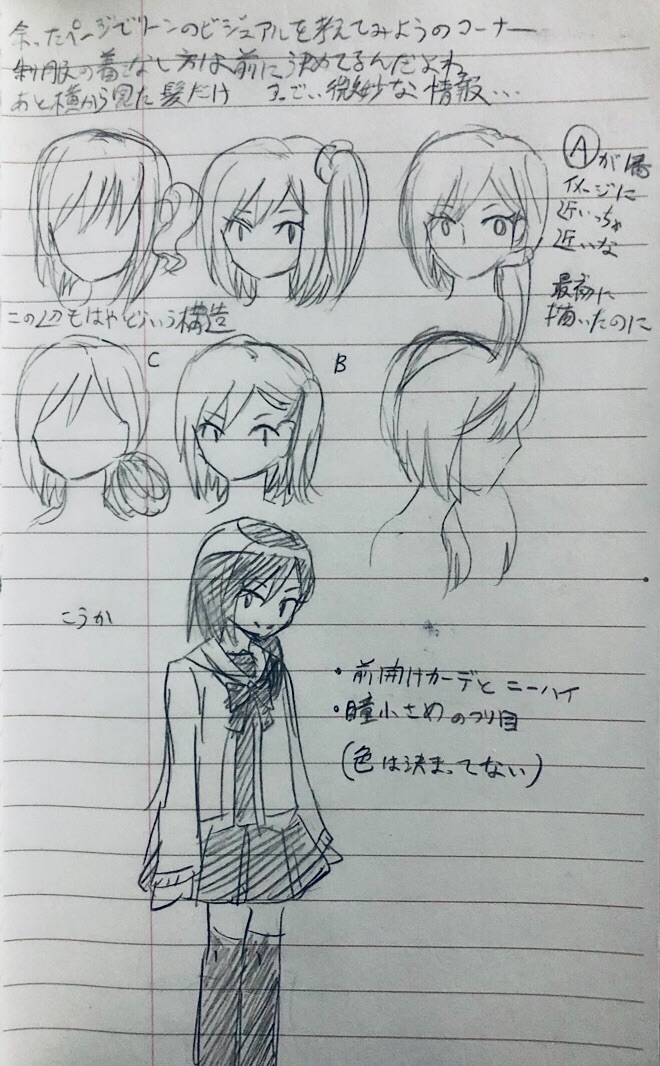 余ったページでリーンのビジュアルを考えてみようのコーナー
制服の着こなし方は前に決めてるんだよね
あと横から見た髪だけ すごい微妙な情報…
Aが1番
イメージに
近いっちゃ
近いな
最初に
描いたのに
もはやどういう構造
C
B
こうか
・前開けカーデとニーハイ
・瞳小さめのつり目
(色は決まってない)